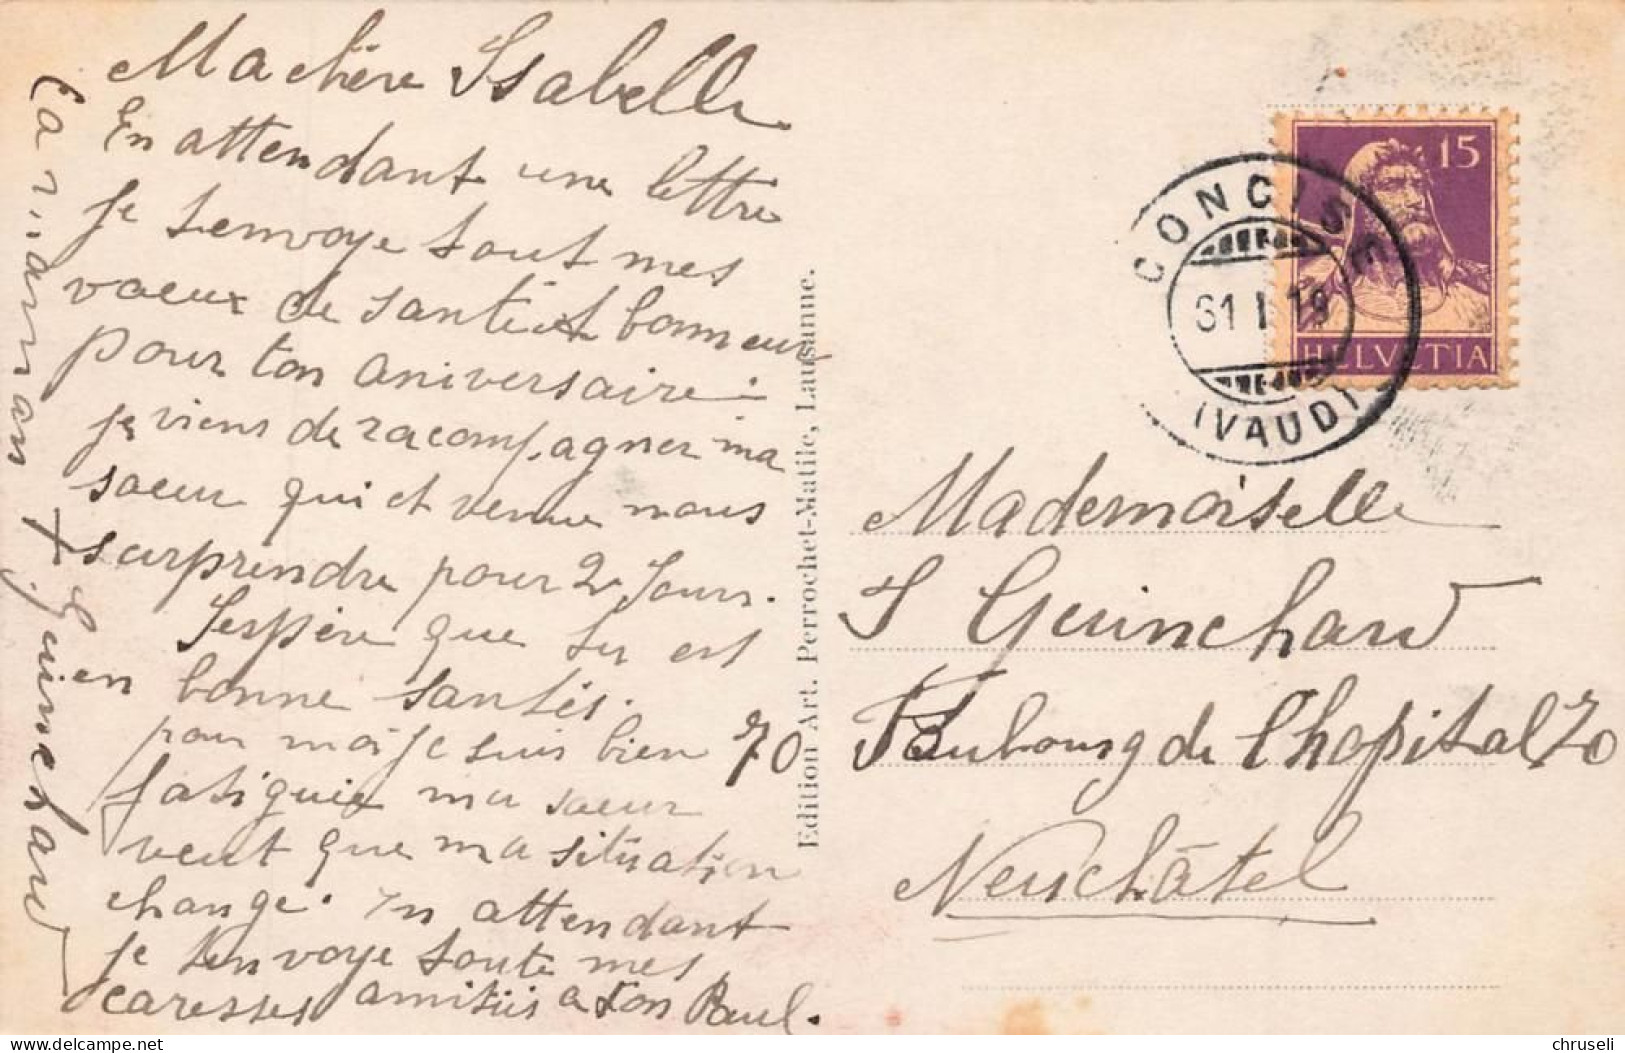 Ma chère Isabelle
En attendant une lettre
je t'envoye tout mes
vœux de santé et bonneur
pour ton aniversaire
je viens de racompagner ma
sœur qui et venue nous
surprendre pour 2 Jours.
J'espère que tu est
en bonne santés.
pour moi je suis bien
fatiguée ma sœur
veut que ma sitúation
change. En attendant
je t'en voye toute mes
caresses amitiés a ton Paul.
ta maman + J. Guinchard
70
Edition Art. Perrochet-Matile, Lausanne.
CONCISE
31 I 19
(VAUD)
15
HELVETIA
Mademoiselle
I Guinchard
Faubourg de l'hopital 70
Neuchâtel
chruseli